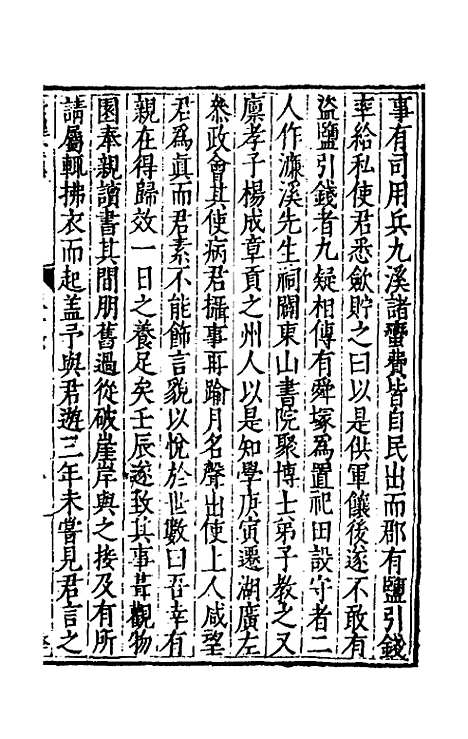 事有司用兵九溪諸蠻費皆自民出而郡有鹽引錢
率給私使君悉歛貯之曰以是供軍饟後遂不敢有
盜鹽引錢者九疑相傳有舜塚爲置祀田設守者二
人作濂溪先生祠闢東山書院聚博士弟子教之又
廪孝子楊成章貢之州人以是知學庚寅遷湖廣左
叅政會其使病君攝事再踰月名聲出使上人咸望
君爲眞而君素不能飾言貌以悅於世數曰吾幸有
親在得歸效一日之養足矣壬辰遂致其事葺觀物
園奉親讀書其間朋舊過從破崖岸與之接及有所
請屬輒拂衣而起盖予與君遊三年未嘗見君言之